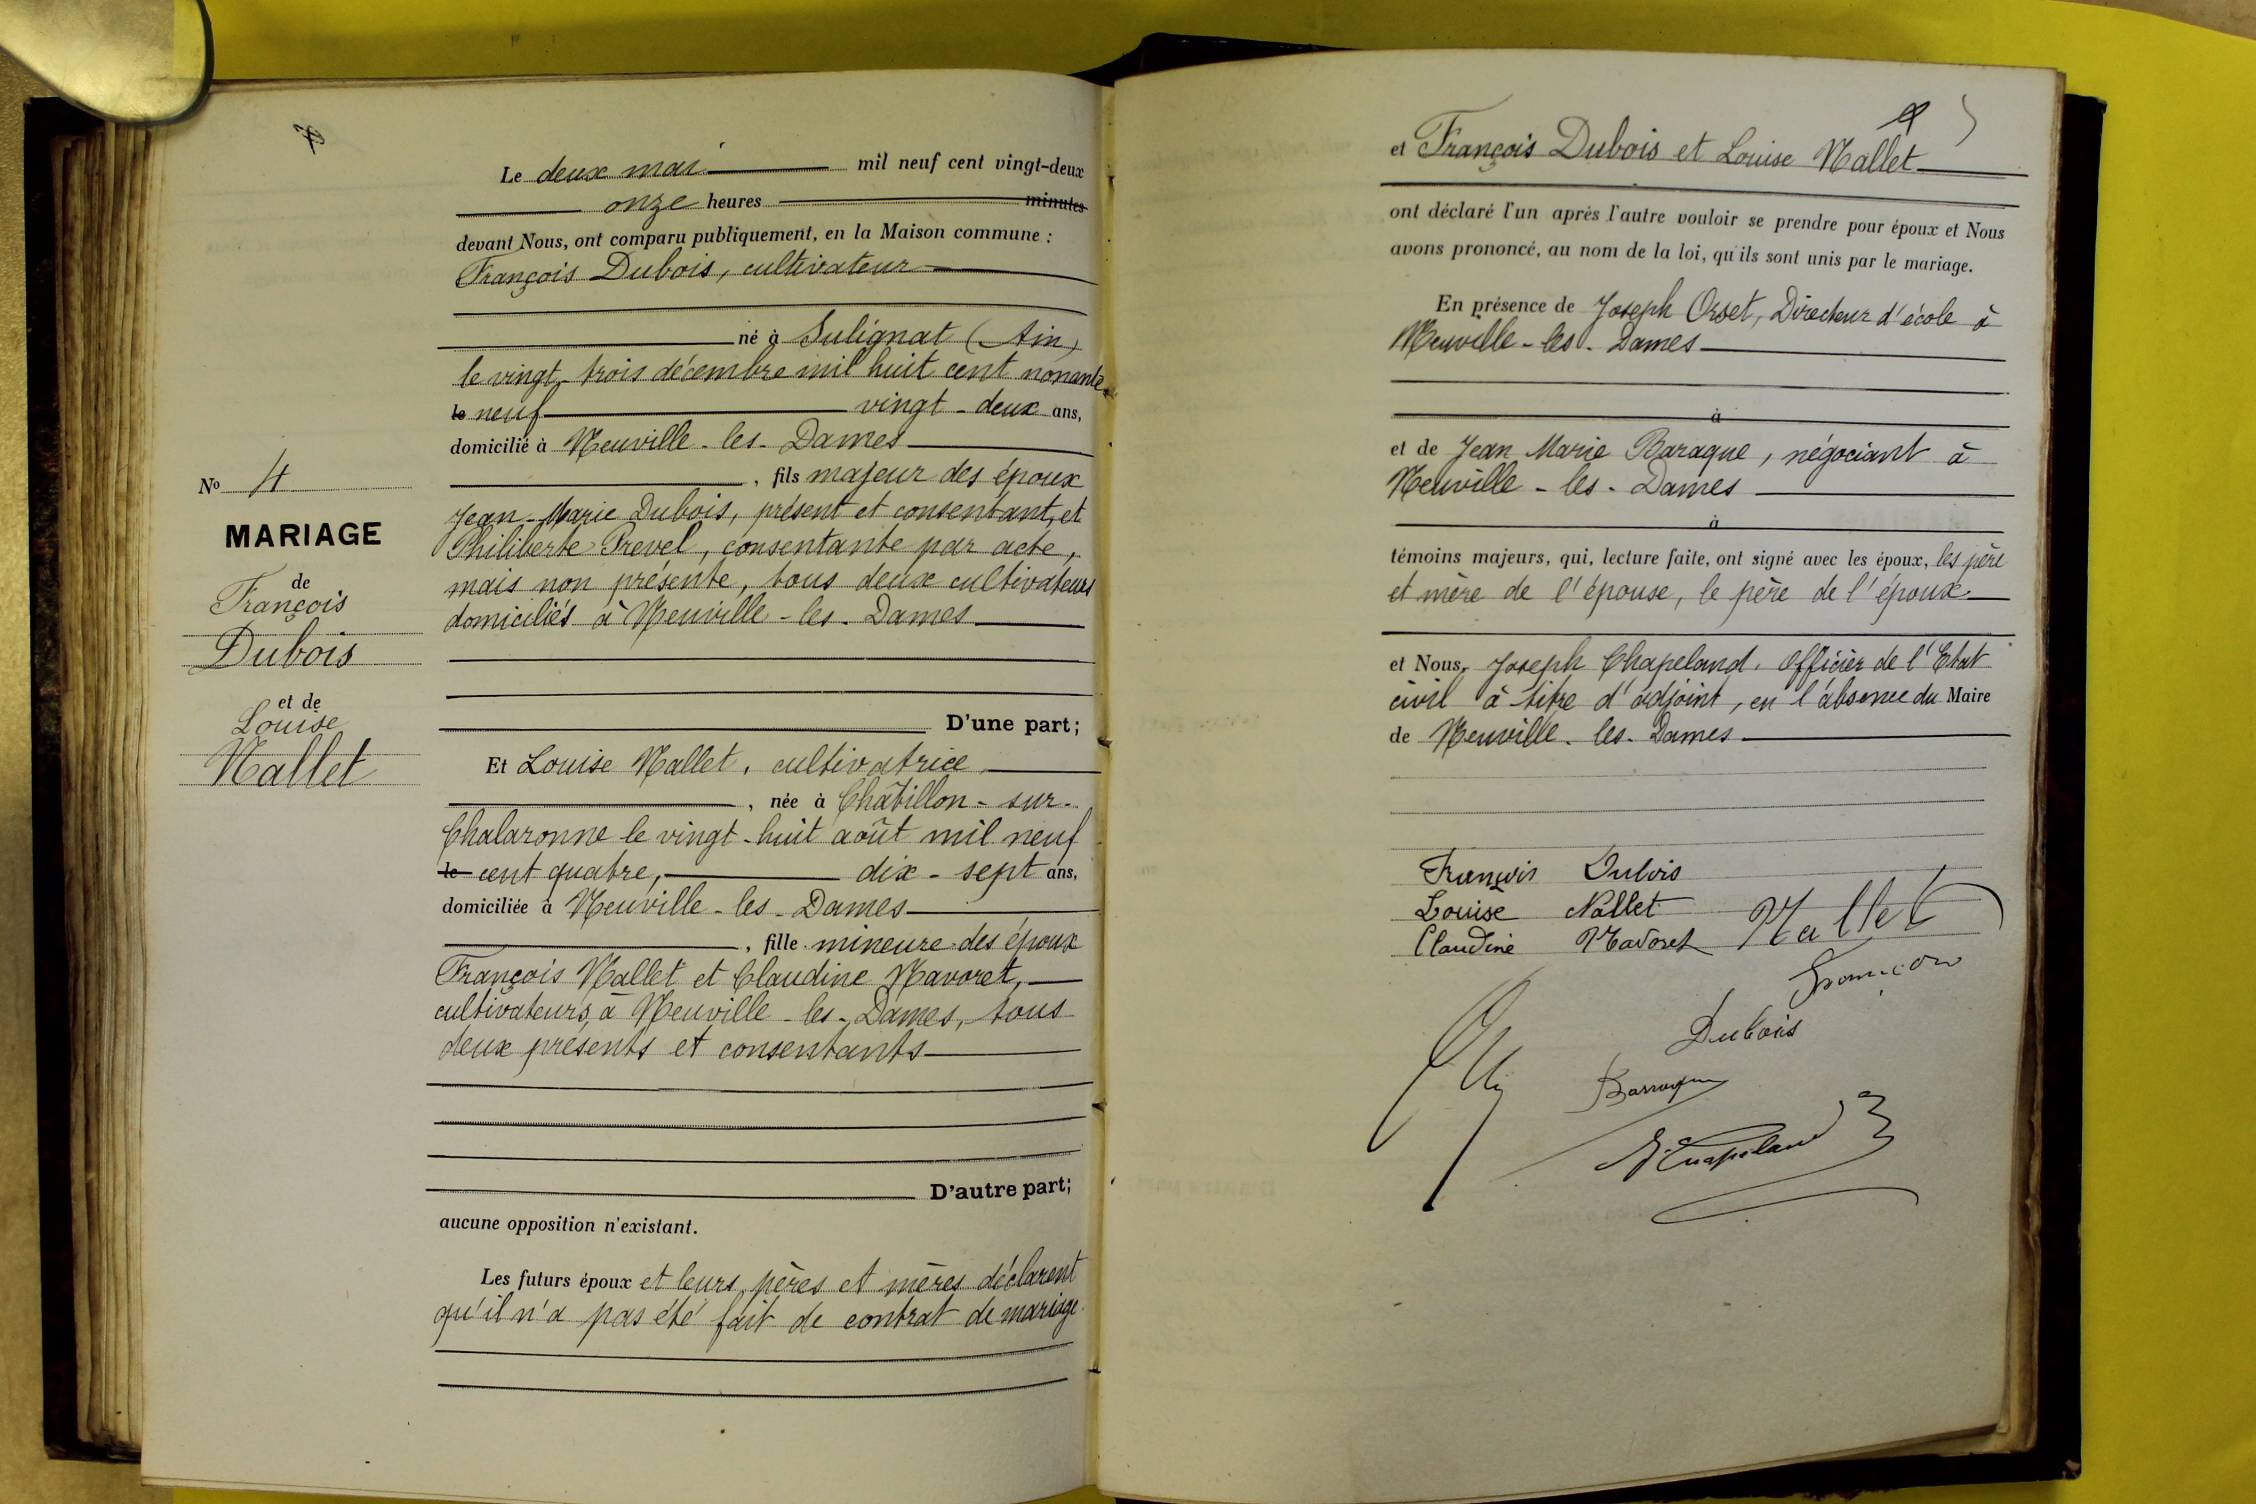 Le deux mai mil neuf cent vingt-deux
onze heures minutes
devant Nous, ont comparu publiquement, en la Maison commune :
François Dubois, cultivateur
né à Sulignat (Ain)
le vingt-trois décembre mil huit cent nonante
le neuf vingt-deux ans,
domicilié à Neuville-les-Dames
, fils majeur des époux
Jean-Marie Dubois, présent et consentant, et
Philiberte Prevel, consentante par acte,
mais non présente, tous deux cultivateurs
domiciliés à Neuville-les-Dames
D'une part;
No 4
MARIAGE
de
François
Dubois
et de
Louise
Nallet
Et Louise Nallet, cultivatrice
, née à Châtillon-sur-
Chalaronne le vingt-huit août mil neuf
le cent quatre, dix-sept ans,
domiciliée à Neuville-les-Dames
, fille mineure des époux
François Nallet et Claudine Navoret,
cultivateurs, à Neuville-les-Dames, tous
deux présents et consentants
D'autre part;
aucune opposition n'existant.
Les futurs époux et leurs pères et mères déclarent
qu'il n'a pas été fait de contrat de mariage.
et François Dubois et Louise Nallet
ont déclaré l'un après l'autre vouloir se prendre pour époux et Nous
avons prononcé, au nom de la loi, qu'ils sont unis par le mariage.
En présence de Joseph Orset, Directeur d'école à
Neuville-les-Dames
à
et de Jean Marie Baraque, négociant à
Neuville-les-Dames
à
témoins majeurs, qui, lecture faite, ont signé avec les époux, les père
et mère de l'épouse, le père de l'époux
et Nous, Joseph Chapeland, Officier de l'Etat
civil à titre d'adjoint, en l'absence du Maire
de Neuville-les-Dames
François Dubois
Louise Nallet Nallet
Claudine Navoret
François
Dubois
J. Chapeland